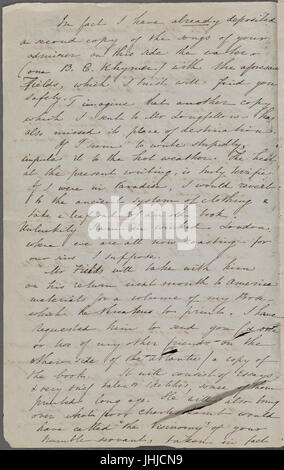 In fact I have already deposited
a second copy of the songs of your
admirer on this side the water
(one B. C.) with the aforesaid
Fields, which I trust will find you
safely. I imagine that another copy
which I sent to Mr Longfellow has
also missed its place of destination.
If I seem to write stupidly,
impute it to the hot weather. The heat
at the present writing, is truly terrific.
If I were in Paradise, I would revert
to the ancient system of clothing &
take a leaf out of
I am in wicked London,
where we are all now roasting for
our sins I suppose.
Mr Fields will take with him
on his return next month to America
materials for a volume of my Prose,
which he threatens to print. I have
requested him to send you (& one
or two of my other friends on the
other side of the atlantic) a copy of
the book. It will consist of Essays
& very brief tales & sketches, some of them
printed long ago. He will also bring
over what poor would
have called "the" of your
humble servant, taken in fact
alamy
Image ID: JHJCN9
www.alamy.com